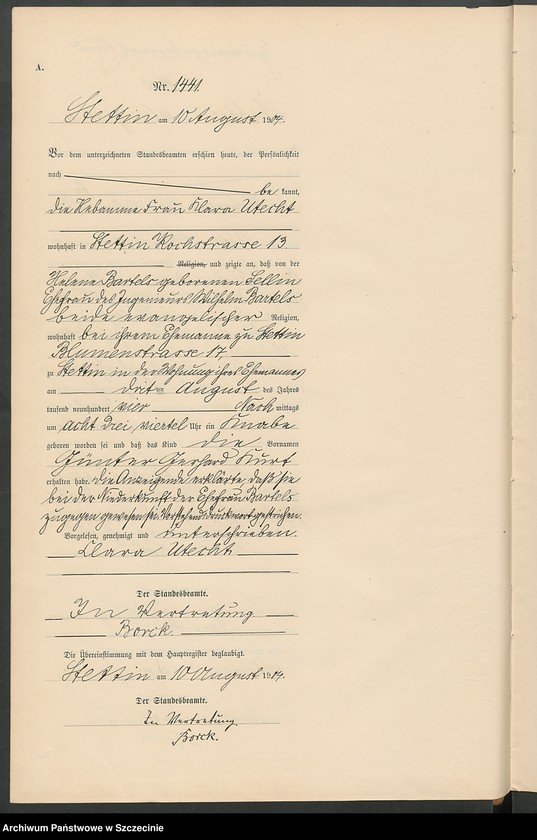 A.
Nr. 1441.
Stettin am 10 August 1904.
Vor dem unterzeichneten Standesbeamten erschien heute, der Persönlichkeit
nach
be kannt,
die Hebamme Frau Klara Utecht
wohnhaft in Stettin Rochstrasse 13
Religion, und zeigte an, daß von der
Helene Bartels geborenen Sellin
Ehefrau des Ingenieurs Wilhelm Bartels
beide evangelischer Religion,
wohnhaft bei ihrem Ehemanne zu Stettin
Blumenstrasse 17,
zu Stettin in der Wohnung ihres Ehemannes
am dritten August des Jahres
tausend neunhundert vier Nach mittags
um acht drei viertel Uhr ein Knabe
geboren worden sei und daß das Kind die Vornamen
Günter Gerhard Kurt
erhalten habe. Die Anzeigende erklärte, daß sie
bei der Niederkunft der Ehefrau Bartels
zugegen gewesen sei. Vorstehend 1 Druckwort gestrichen.
Vorgelesen, genehmigt und unterschrieben.
Clara Utecht
Der Standesbeamte.
In Vertretung
Borck.
Die Übereinstimmung mit dem Hauptregister beglaubigt.
Stettin am 10 August 1904.
Der Standesbeamte.
In Vertretung
Borck.
Archiwum Państwowe w Szczecinie